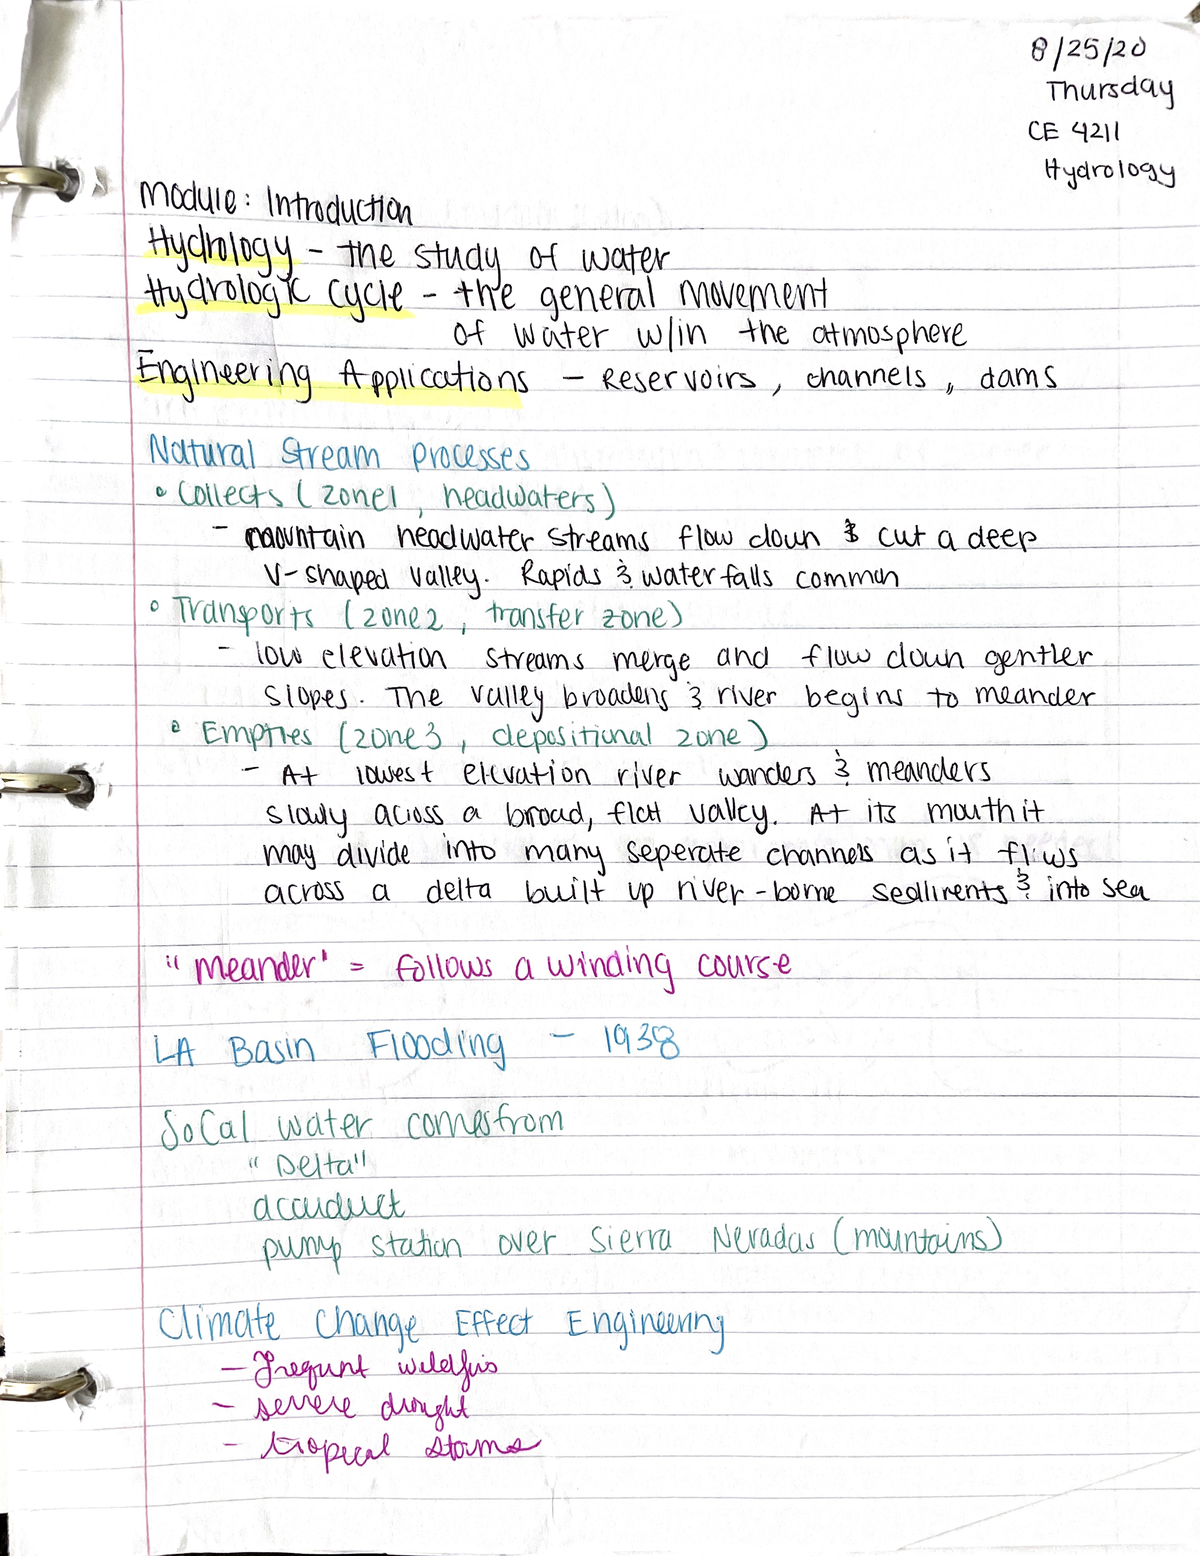 8/25/20
Thursday
CE 4211
Hydrology
Module: Introduction
Hydrology - the study of water
Hydrologic Cycle - the general movement
of water w/in the atmosphere
Engineering Applications - Reservoirs, channels, dams
Natural Stream processes
• Collects (zone1, headwaters)
- mountain headwater streams flow down & cut a deep
V-shaped valley. Rapids & waterfalls common
• Transports (zone2, transfer zone)
- low elevation streams merge and flow down gentler
slopes. The valley broadens & river begins to meander
• Empties (zone3, depositional zone)
- At lowest elevation river wanders & meanders
slowly across a broad, flat valley. At its mouth it
may divide into many seperate channels as it flows
across a delta built up river-borne sediments & into sea
"meander" = follows a winding course
LA Basin Flooding - 1938
SoCal water comes from
"Delta"
acauduct
pump station over Sierra Nevadas (mountains)
Climate Change Effect Engineering
- Frequnt wildfirs
- severe drought
- tropical storms